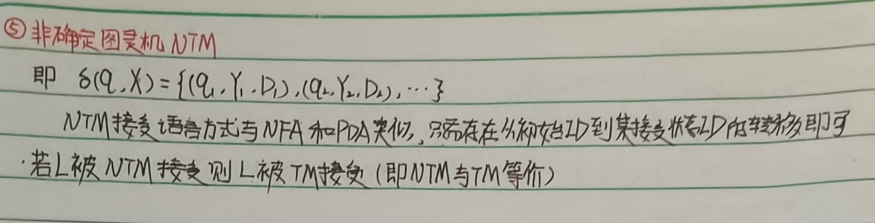 ⑤ 非确定图灵机 NTM
即 δ(q,X)={(q₁,Y₁,D₁),(q₂,Y₂,D₂),…}
NTM接受语言方式与NFA和PDA类似,只需存在从初始ID到某接受状态ID的转移即可
·若L被NTM接受则L被TM接受(即NTM与TM等价)